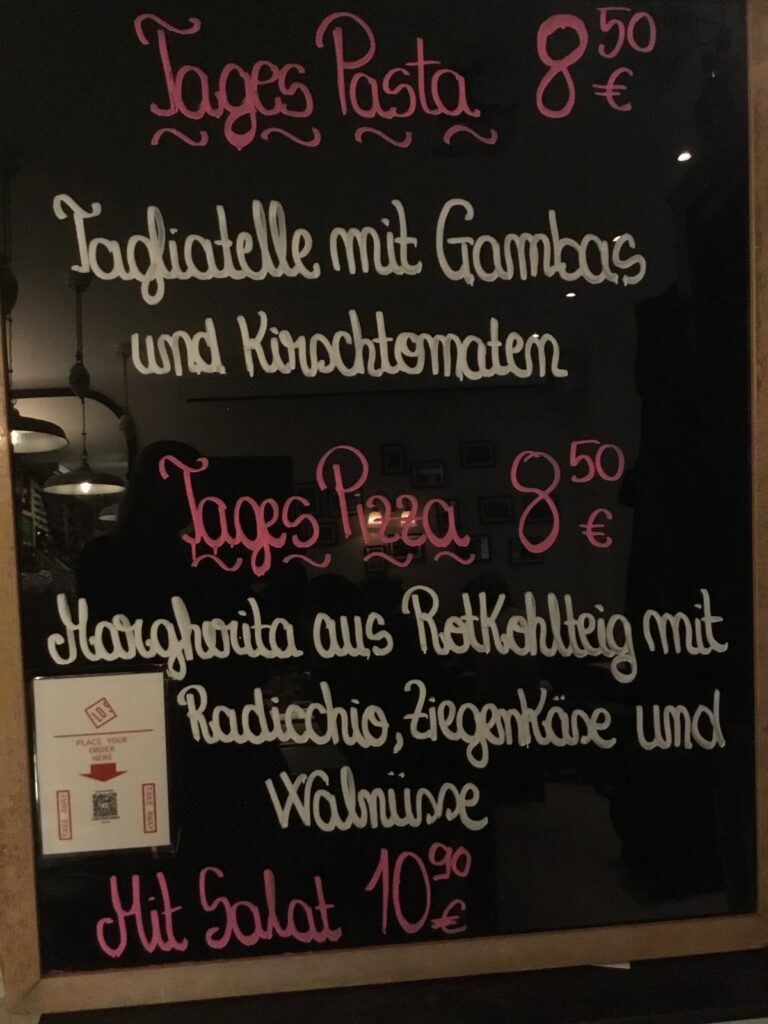 Tages Pasta 8 50 €
Tagliatelle mit Gambas
und Kirschtomaten
Tages Pizza 8 50 €
Margherita aus Rotkohlteig mit
Radicchio, Ziegenkäse und
Walnüsse
PLACE YOUR
ORDER
HERE
TAKE AWAY
TAKE AWAY
Mit Salat 10 90 €